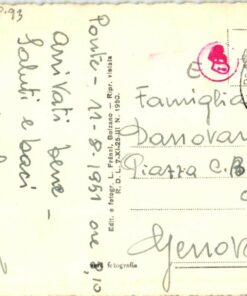 Ponte - 11-8-951 ore
arrivati bene -
Saluti e baci
Edit. e fotogr. L. Fränzl, Bolzano - Ripr. vietata
R. D. L. 7-XI-25-III N. 1950.
fotografia
Famiglia
Dassovan
Piazza C. B
Genova